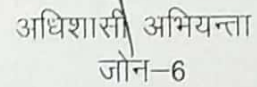 अधिशासी अभियन्ता
जोन-6